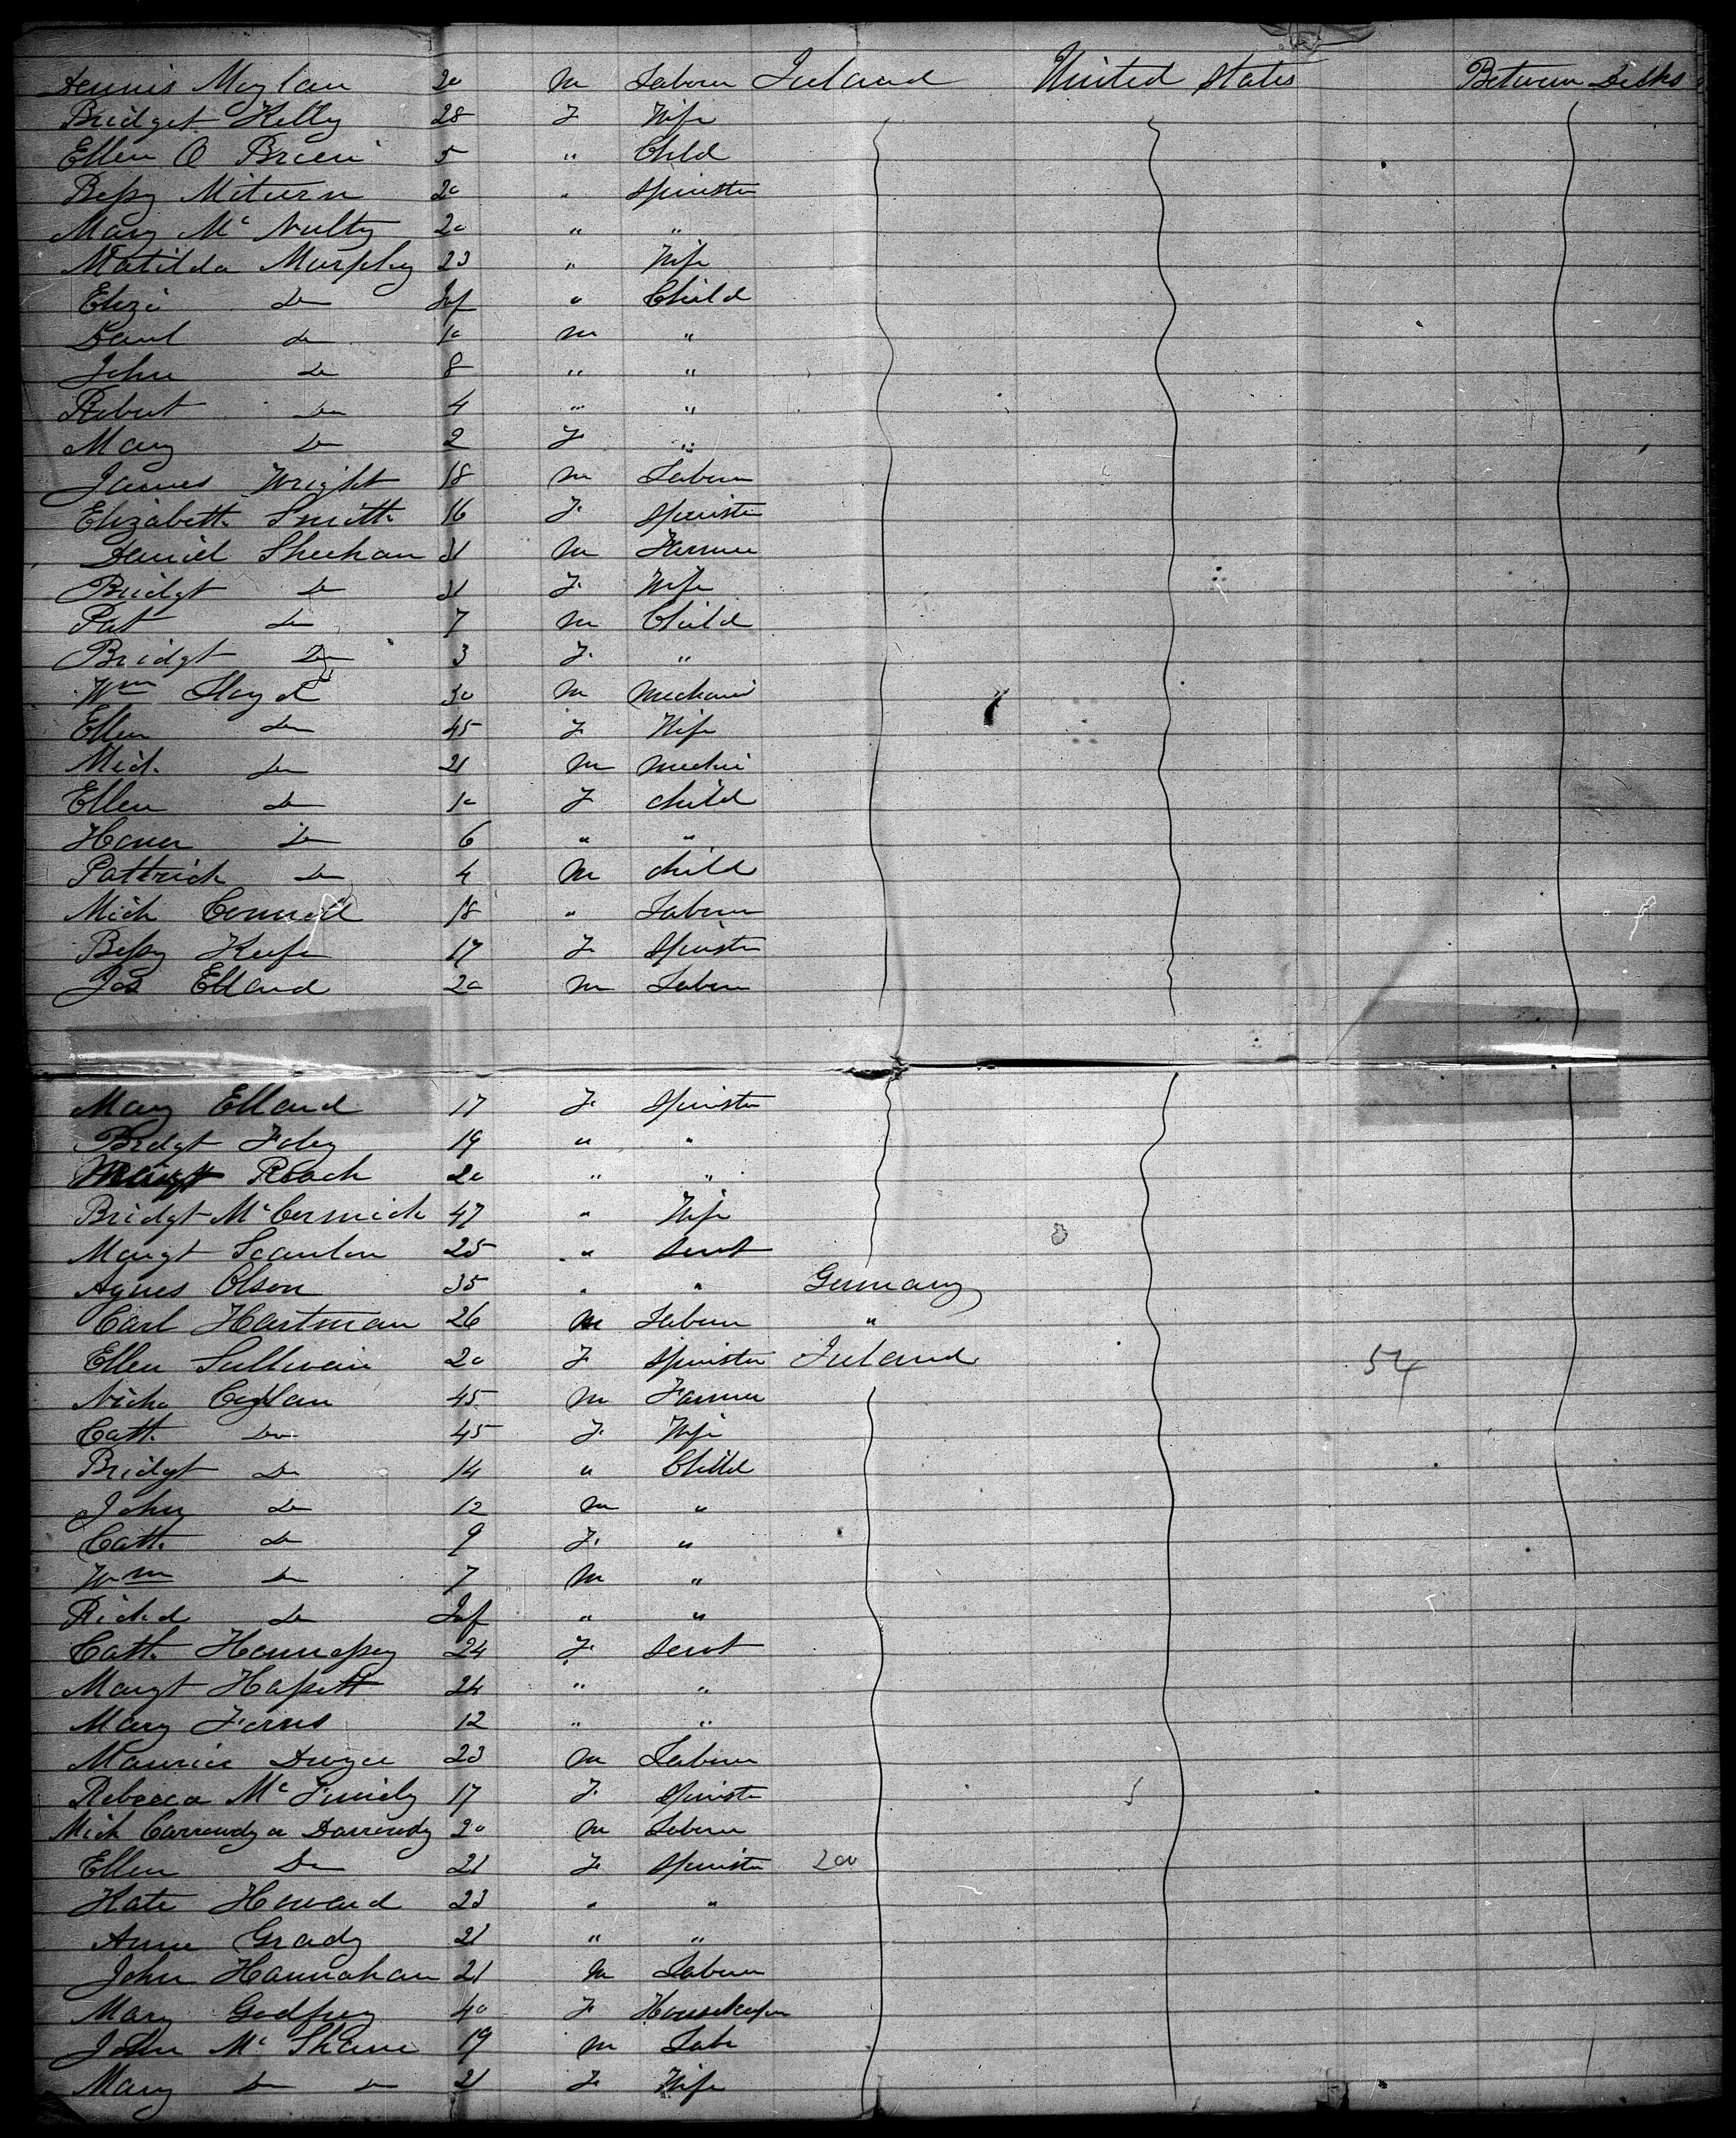 Dennis Moylan 20 M Labourer Ireland United States Between Decks
Bridget Kelly 28 F Wife
Ellen O Brien 5 " Child
Bessy 20 " Spinster
Mary Mc Nulty 20 " "
Matilda Murphy 23 " Wife
Eliza Do Inf " Child
Saml Do 10 M "
John Do 8 " "
Robert Do 4 " "
Mary Do 2 F "
James Wright 18 M Labourer
Elizabeth Smith 16 F Spinster
Daniel Sheehan 31 M Farmer
Bridgt Do 31 F Wife
Pat Do 7 M Child
Bridgt Do 3 F "
Wm 30 M Mechanic
Ellen Do 45 F Wife
Mich. Do 21 M
Ellen Do 10 F child
Honor Do 6 " "
Pattrick Do 4 M child
Mich Connell 18 " Labourer
Bessy Keefe 17 F Spinster
Jas Elland 20 M Labourer
Mary Elland 17 F Spinster
Bridgt Foley 19 " "
Margt Roach 20 " "
Bridgt McCormick 47 " Wife
Margt Scanlon 25 " Servt
Agnes Olson 35 " " Germany
Carl Hartman 26 M Labourer "
Ellen Sullivan 20 F Spinster Ireland 54
Nichs 45 M Farmer
Cath. Do 45 F Wife
Bridgt Do 14 " Child
John Do 12 M "
Cath. Do 9 F "
Wm Do 7 M "
Richd Do Inf " "
Cath. Hennessy 24 F Servt
Margt Hassett 24 " "
Mary Ferns 12 " "
Maurice Dwyer 23 M Labourer
Rebecca Mc 17 F Spinster
Mich Carrowdy or Darrowdy 20 M Labourer
Ellen Do 21 F Spinster 200
Kate Howard 23 " "
Annie Grady 21 " "
John Hannahan 21 M Labourer
Mary Godfrey 40 F Housekeeper
John Mc Shane 19 M Labr
Mary Do Do 21 F Wife